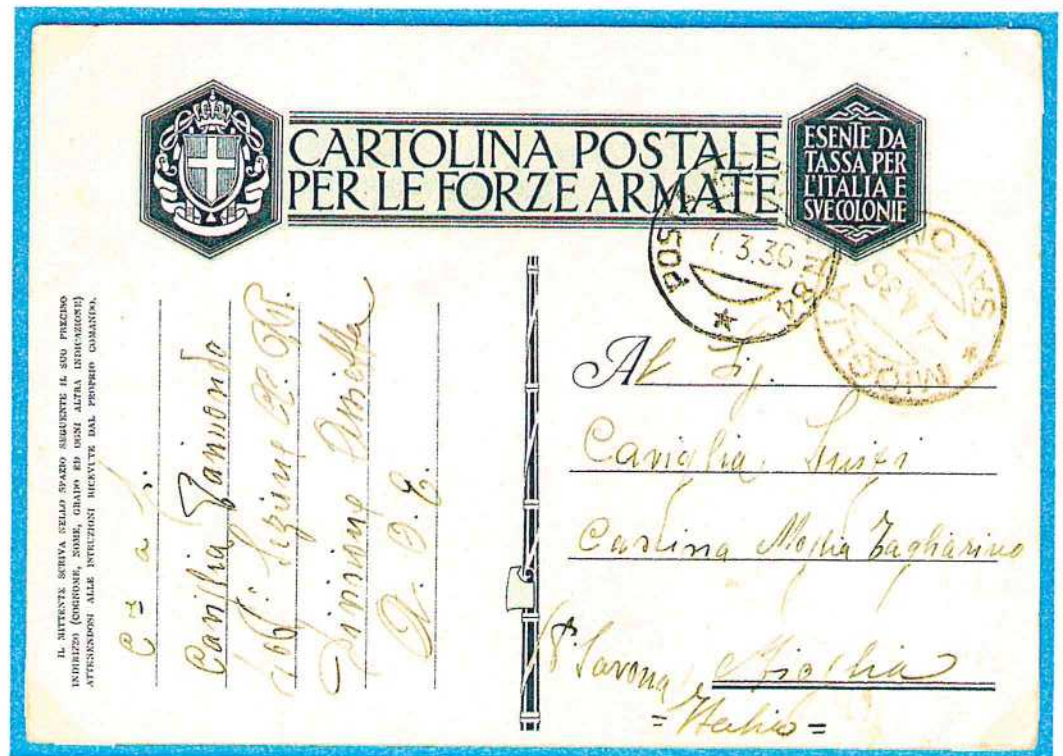 CARTOLINA POSTALE
PER LE FORZE ARMATE
ESENTE DA
TASSA PER
L'ITALIA E
SVE COLONIE
POS
1.3.36
84
MIOGLIA
SAVONA
36
IL MITTENTE SCRIVA NELLO SPAZIO SEGUENTE IL SUO PRECISO
INDIRIZZO (COGNOME, NOME, GRADO ED OGNI ALTRA INDICAZIONE)
ATTENENDOSI ALLE ISTRUZIONI RICEVUTE DAL PROPRIO COMANDO.
Caviglia Raimondo
Sezione CC. RR.
Divisione Assietta
A. O.
Al Sig.
Caviglia Luigi
Cascina Moglia Tagliarino
Mioglia
Savona
= Italia =